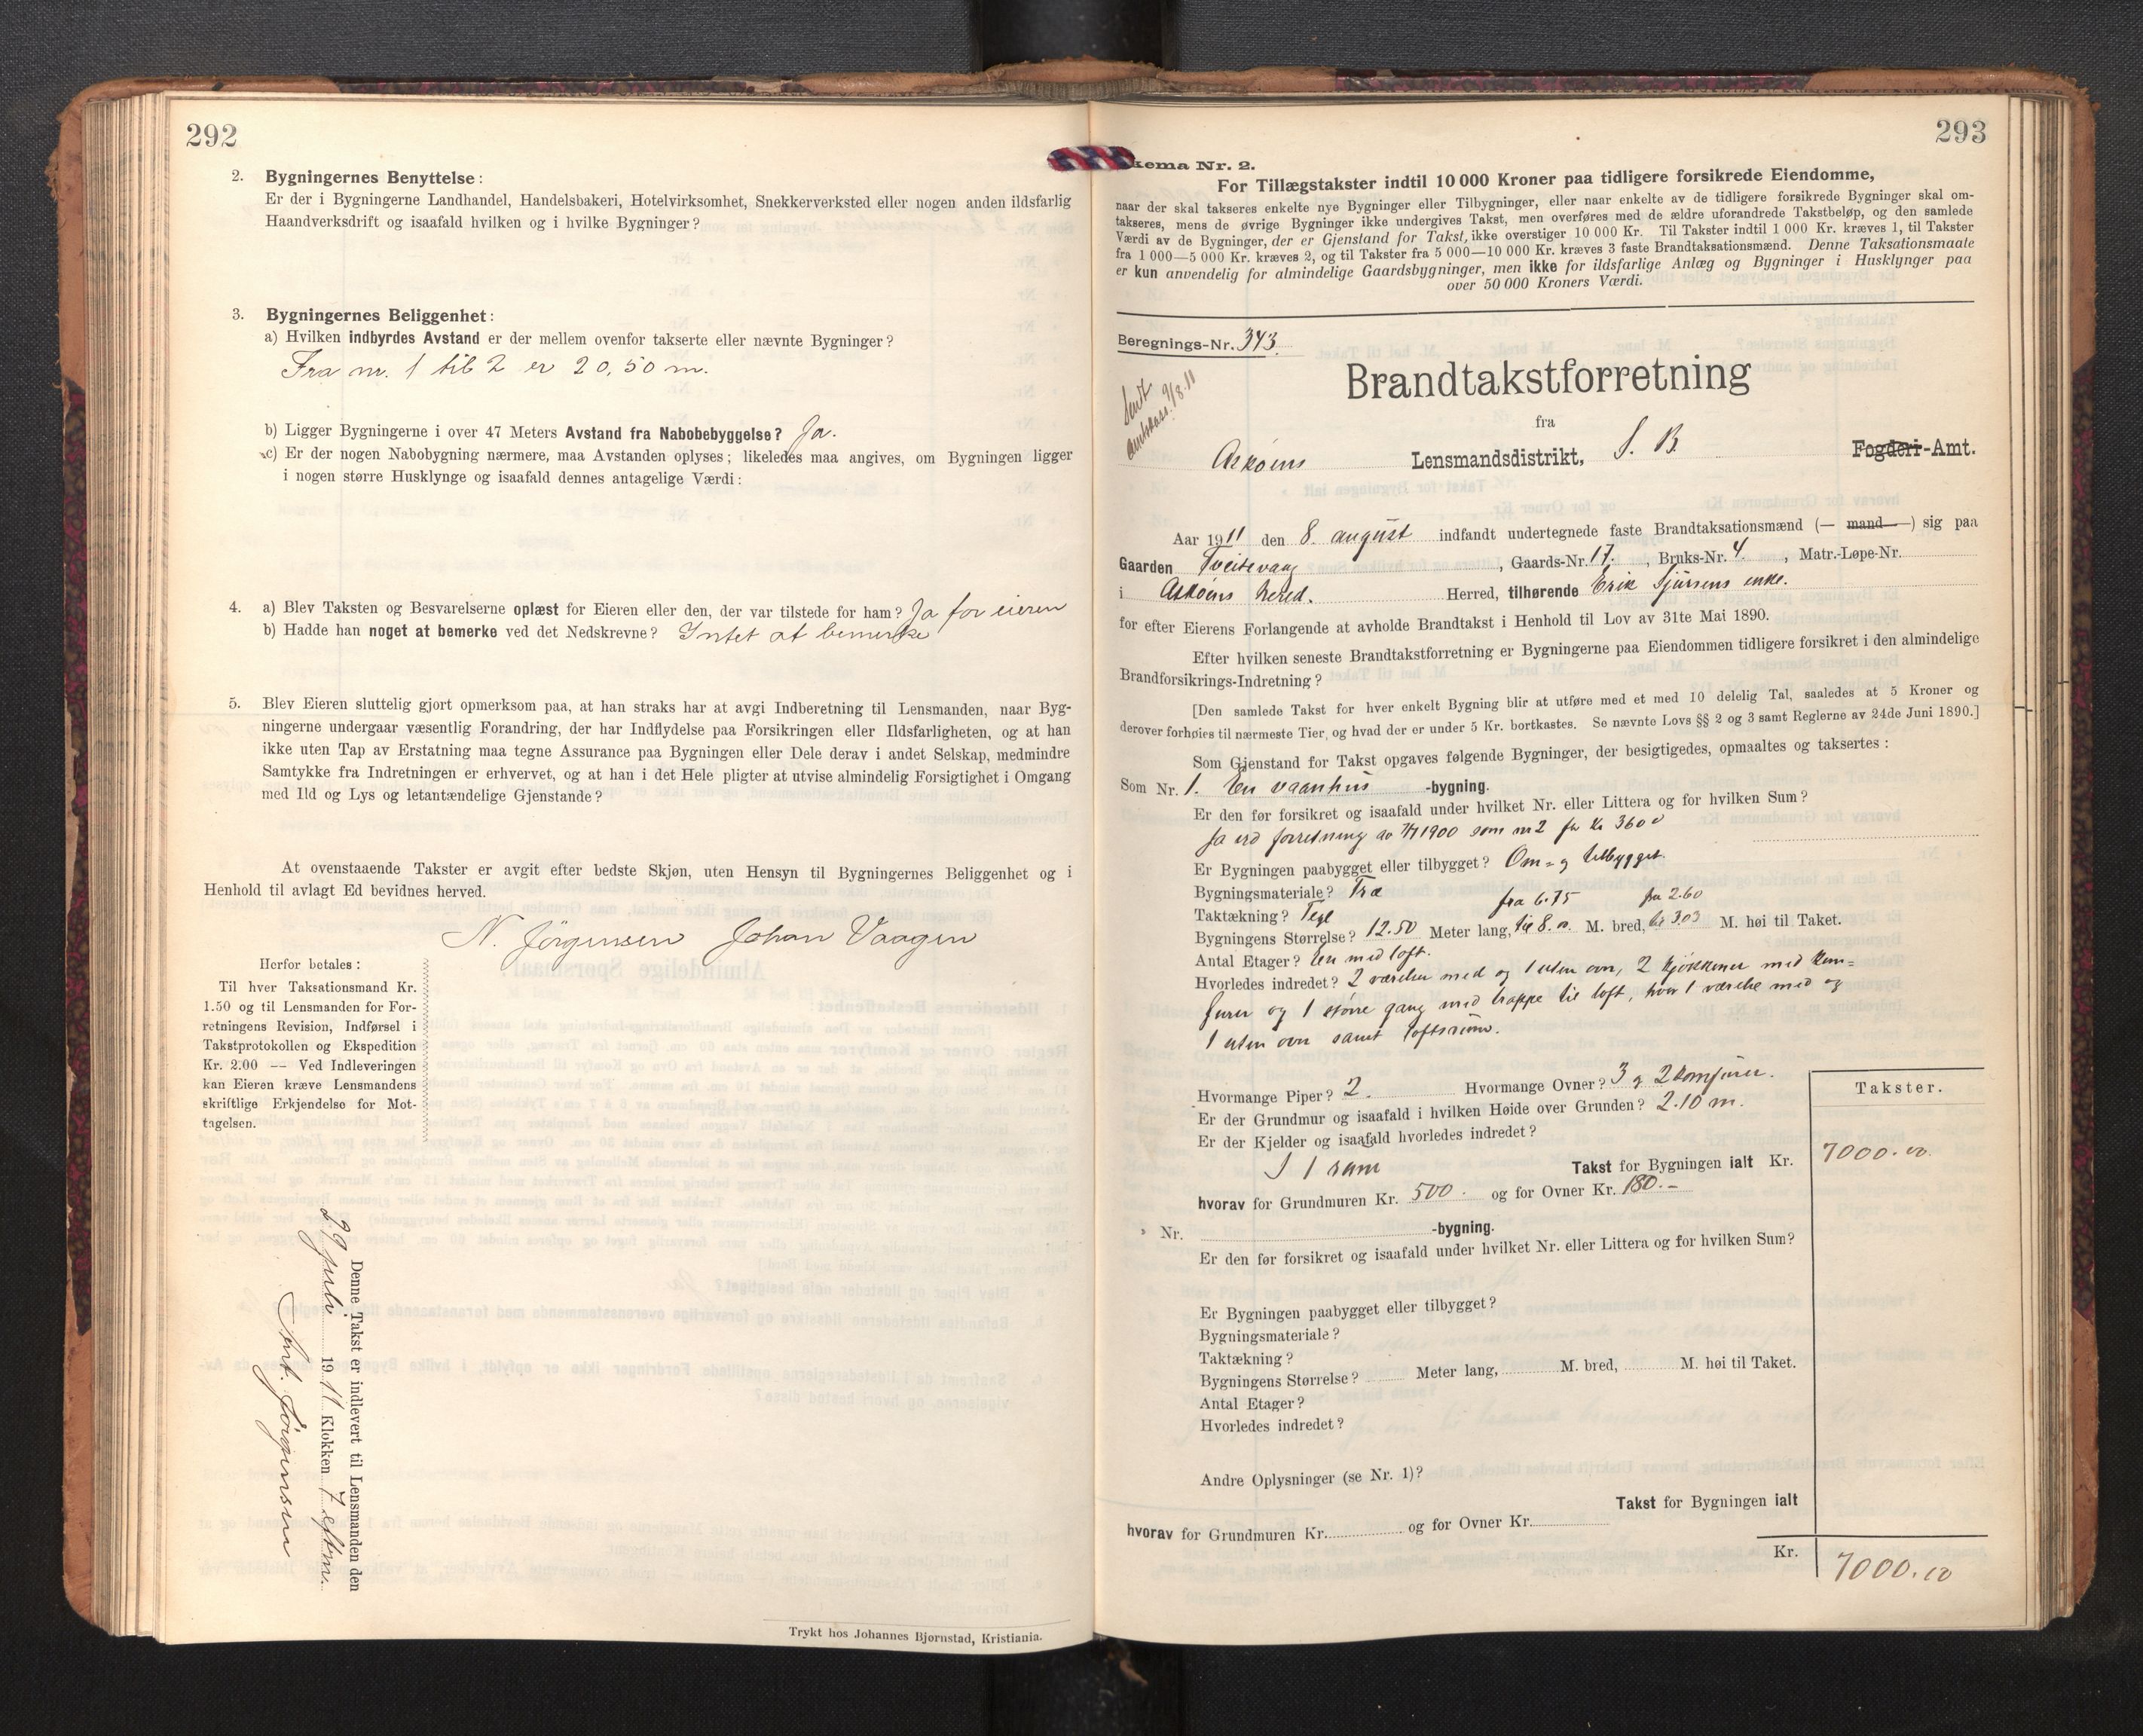 292
2. Bygningernes Benyttelse:
Er der i Bygningerne Landhandel, Handelsbakeri, Hotelvirksomhet, Snekkerverksted eller nogen anden ildsfarlig
Haandverksdrift og isaafald hvilken og i hvilke Bygninger?
3. Bygningernes Beliggenhet:
a) Hvilken indbyrdes Avstand er der mellem ovenfor takserte eller nævnte Bygninger?
Fra nr. 1 til 2 er 20,50 m.
b) Ligger Bygningerne i over 47 Meters Avstand fra Nabobebyggelse? Ja.
c) Er der nogen Nabobygning nærmere, maa Avstanden oplyses; likeledes maa angives, om Bygningen ligger
i nogen større Husklynge og isaafald dennes antagelige Værdi:
4. a) Blev Taksten og Besvarelserne oplæst for Eieren eller den, der var tilstede for ham? Ja for eieren
b) Hadde han noget at bemerke ved det Nedskrevne? Intet at bemerke
5. Blev Eieren sluttelig gjort opmerksom paa, at han straks har at avgi Indberetning til Lensmanden, naar Byg-
ningerne undergaar væsentlig Forandring, der har Indflydelse paa Forsikringen eller Ildsfarligheten, og at han
ikke uten Tap av Erstatning maa tegne Assurance paa Bygningen eller Dele derav i andet Selskap, medmindre
Samtykke fra Indretningen er erhvervet, og at han i det Hele pligter at utvise almindelig Forsigtighet i Omgang
med Ild og Lys og letantændelige Gjenstande?
At ovenstaaende Takster er avgit efter bedste Skjøn, uten Hensyn til Bygningernes Beliggenhet og i
Henhold til avlagt Ed bevidnes herved.
N. Jörgensen Johan Vaagen
Herfor betales:
Til hver Taksationsmand Kr.
1.50 og til Lensmanden for For-
retningens Revision, Indførsel i
Takstprotokollen og Ekspedition
Kr. 2.00 — Ved Indleveringen
kan Eieren kræve Lensmandens
skriftlige Erkjendelse for Mot-
tagelsen.
Denne Takst er indlevert til Lensmanden den
29 juli 1911 Klokken 7 eftm.
Jörgensen
Trykt hos Johannes Bjørnstad, Kristiania.
293
kema Nr. 2.
For Tillægstakster indtil 10 000 Kroner paa tidligere forsikrede Eiendomme,
naar der skal takseres enkelte nye Bygninger eller Tilbygninger, eller naar enkelte av de tidligere forsikrede Bygninger skal om-
takseres, mens de øvrige Bygninger ikke undergives Takst, men overføres med de ældre uforandrede Takstbeløp, og den samlede
Værdi av de Bygninger, der er Gjenstand for Takst, ikke overstiger 10 000 Kr. Til Takster indtil 1 000 Kr. kræves 1, til Takster
fra 1 000—5 000 Kr. kræves 2, og til Takster fra 5 000—10 000 Kr. kræves 3 faste Brandtaksationsmænd. Denne Taksationsmaate
er kun anvendelig for almindelige Gaardsbygninger, men ikke for ildsfarlige Anlæg og Bygninger i Husklynger paa
over 50 000 Kroners Værdi.
Beregnings-Nr. 343.
Sendt
9/8.11
Brandtakstforretning
fra
Askøens Lensmandsdistrikt, S. B. Fogderi-Amt.
Aar 1911 den 8. august indfandt undertegnede faste Brandtaksationsmænd (— mand —) sig paa
Gaarden Tveitevaag, Gaards-Nr. 17, Bruks-Nr. 4, Matr.-Løpe-Nr.
i Askøens hered. Herred, tilhørende Erik Sjursens enke.
for efter Eierens Forlangende at avholde Brandtakst i Henhold til Lov av 31te Mai 1890.
Efter hvilken seneste Brandtakstforretning er Bygningerne paa Eiendommen tidligere forsikret i den almindelige
Brandforsikrings-Indretning?
[Den samlede Takst for hver enkelt Bygning blir at utføre med et med 10 delelig Tal, saaledes at 5 Kroner og
derover forhøies til nærmeste Tier, og hvad der er under 5 Kr. bortkastes. Se nævnte Lovs §§ 2 og 3 samt Reglerne av 24de Juni 1890.]
Som Gjenstand for Takst opgaves følgende Bygninger, der besigtigedes, opmaaltes og taksertes:
Som Nr. 1. En vaanhus -bygning.
Er den før forsikret og isaafald under hvilket Nr. eller Littera og for hvilken Sum?
Ja ved forretning av 1900 som nr 2 for kr 3600
Er Bygningen paabygget eller tilbygget? Om- og tilbygget.
Bygningsmateriale? Træ
Taktækning? Tegl fra 6.75 fra 2.60
Bygningens Størrelse? 12.50 Meter lang, til 8.00 M. bred, til 3.03 M. høi til Taket.
Antal Etager? En med loft.
Hvorledes indredet? 2 værelser med og 1 uten ovn, 2 kjøkkener med kom-
furer og 1 större gang med trappe til loft, hvor 1 værelse med og
1 uten ovn samt loftsrum.
Hvormange Piper? 2. Hvormange Ovner? 3 og 2 komfurer.
Er der Grundmur og isaafald i hvilken Høide over Grunden? 2.10 m.
Er der Kjelder og isaafald hvorledes indredet?
I 1 rum
Takst for Bygningen ialt Kr.
Takster.
7000.00
hvorav for Grundmuren Kr. 500. og for Ovner Kr. 180.-
» Nr. -bygning.
Er den før forsikret og isaafald under hvilket Nr. eller Littera og for hvilken Sum?
Er Bygningen paabygget eller tilbygget?
Bygningsmateriale?
Taktækning?
Bygningens Størrelse? Meter lang, M. bred, M. høi til Taket.
Antal Etager?
Hvorledes indredet?
Andre Oplysninger (se Nr. 1)?
Takst for Bygningen ialt
hvorav for Grundmuren Kr. og for Ovner Kr.
Kr. 7000.00